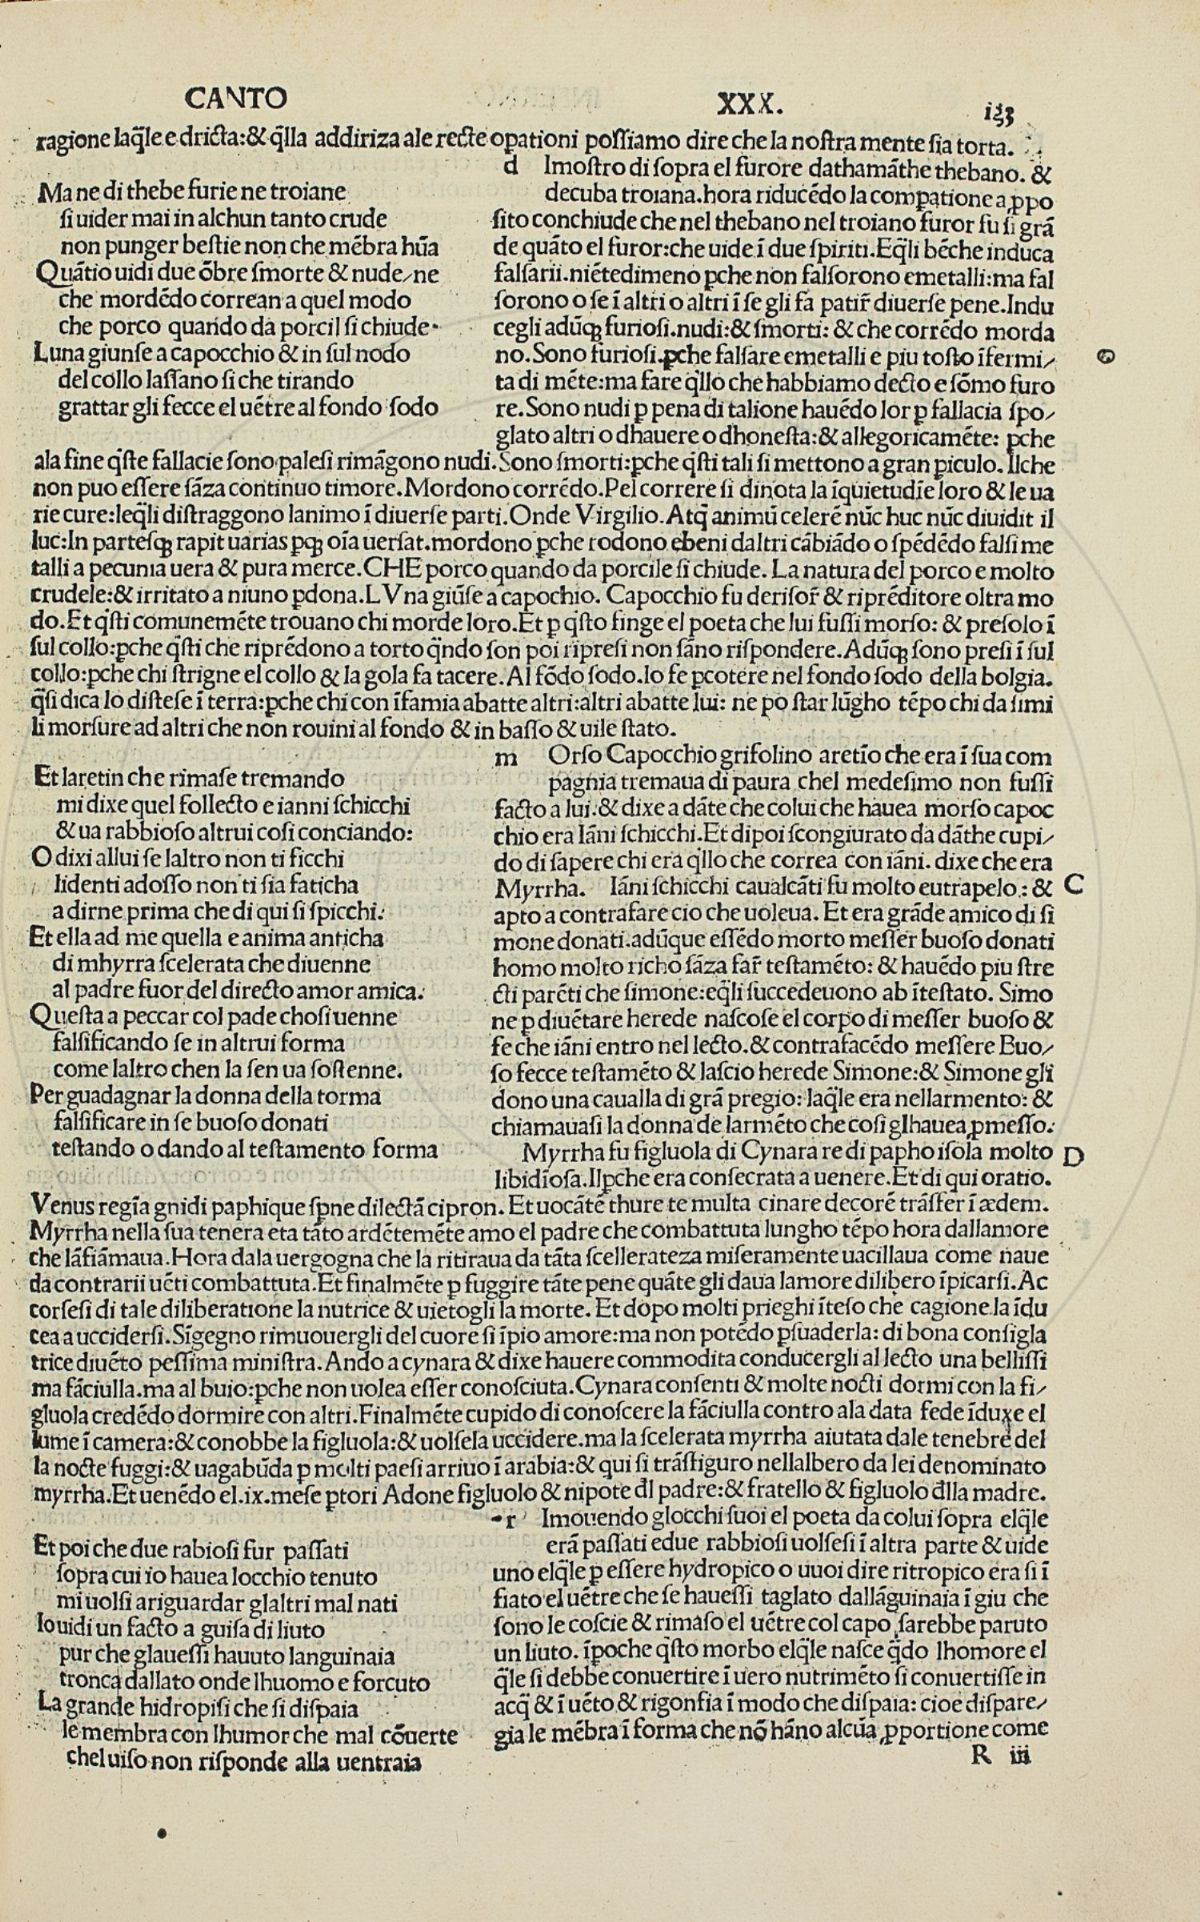 CANTO XXX. 133
ragione laq̃le e dricta:& q̃lla addiriza ale recte opationi possiamo dire che la nostra mente sia torta.
Ma ne di thebe furie ne troiane
si uider mai in alchun tanto crude
non punger bestie non che mẽbra hũa
Quãtio uidi due õbre smorte & nude/ne
che mordẽdo correan a quel modo
che porco quando da porcil si chiude.
Luna giunse a capocchio & in sul nodo
del collo lassano si che tirando
grattar gli fecce el uẽtre al fondo sodo
d Imostro di sopra el furore dathamãthe thebano. &
decuba troiana.hora riducẽdo la compatione a ꝓpo
sito conchiude che nel thebano nel troiano furor fu si grã
de quãto el furor:che uide ĩ due spiriti.Eq̃li bẽche induca
falsarii.niẽtedimeno ꝑche non falsorono emetalli:ma fal
sorono o se ĩ altri o altri ĩ se gli fa patir̃ diuerse pene.Indu
cegli adũqꝫ furiosi.nudi:& smorti: & che corrẽdo morda
no.Sono furiosi.ꝑche falsare emetalli e piu tosto ĩfermi/
ta di mẽte:ma fare q̃llo che habbiamo decto e sõmo furo
re.Sono nudi ꝑ pena di talione hauẽdo lor ꝑ fallacia spo/
gliato altri o dhauere o dhonesta:& allegoricamẽte: ꝑche
ala fine q̃ste fallacie sono palesi rimãgono nudi.Sono smorti:ꝑche q̃sti tali si mettono a gran ꝑiculo. Ilche
non puo essere sãza continuo timore.Mordono corrẽdo.Pel correre si dinota la ĩquietudie loro & le ua
rie cure:leq̃li distraggono lanimo ĩ diuerse parti.Onde Virgilio.Atq̃ animũ celerẽ nũc huc nũc diuidit il
luc:In partesqꝫ rapit uarias ꝑqꝫ oĩa uersat.mordono ꝑche rodono ebeni daltri cãbiãdo o spẽdẽdo falsi me
talli a pecunia uera & pura merce.CHE porco quando da porcile si chiude. La natura del porco e molto
crudele:& irritato a niuno ꝑdona.LVna giũse a capochio. Capocchio fu derisor̃ & riprẽditore oltra mo
do.Et q̃sti comunemẽte trouano chi morde loro.Et ꝑ q̃sto finge el poeta che lui fussi morso: & presolo ĩ
sul collo:ꝑche q̃sti che riprẽdono a torto q̃ndo son poi ripresi non sãno rispondere.Adũqꝫ sono presi ĩ sul
collo:ꝑche chi strigne el collo & la gola fa tacere.Al fõdo sodo.lo fe ꝑcotere nel fondo sodo della bolgia.
q̃si dica lo distese ĩ terra:ꝑche chi con ĩfamia abatte altri:altri abatte lui: ne po star lũgho tẽpo chi da simi
li morsure ad altri che non rouini al fondo & in basso & uile stato.
Et laretin che rimase tremando
mi dixe quel follecto e ianni schicchi
& ua rabbioso altrui cosi conciando:
O dixi allui se laltro non ti ficchi
lidenti adosso non ti sia faticha
a dirne prima che di qui si spicchi.
Et ella ad me quella e anima anticha
di mhyrra scelerata che diuenne
al padre fuor del directo amor amica.
Questa a peccar col pade chosi uenne
falsificando se in altrui forma
come laltro chen la sen ua sostenne.
Per guadagnar la donna della torma
falsificare in se buoso donati
testando o dando al testamento forma
m Orso Capocchio grifolino aretĩo che era ĩ sua com
pagnia tremaua di paura chel medesimo non fussi
facto a lui.& dixe a dãte che colui che hauea morso capoc
chio era Iãni schicchi.Et dipoi scongiurato da dãthe cupi/
do di sapere chi era q̃llo che correa con iãni. dixe che era
Myrrha. Iãni schicchi caualcãti fu molto eutrapelo.: & C
apto a contrafare cio che uoleua. Et era grãde amico di si
mone donati.adũque essẽdo morto messer buoso donati
homo molto richo sãza far̃ testamẽto: & hauẽdo piu stre
cti parẽti che simone:eq̃li succedeuono ab ĩtestato. Simo
ne ꝑ diuẽtare herede nascose el corpo di messer buoso &
fe che iãni entro nel lecto.& contrafacẽdo messere Buo/
so fecce testamẽto & lascio herede Simone:& Simone gli
dono una caualla di grã pregio: laq̃le era nellarmento: &
chiamauasi la donna de larmẽto che cosi glhauea ꝓmesso.
Myrrha fu figluola di Cynara re di papho isola molto D
libidĩosa.Ilꝑche era consecrata a uenere.Et di qui oratio.
Venus regĩa gnidi paphique spne dilectã cipron.Et uocãtẽ thure te multa cinare decorẽ trãsfer ĩ ædem.
Myrrha nella sua tenera eta tãto ardẽtemẽte amo el padre che combattuta lungho tẽpo hora dallamore
che lãfiãmaua.Hora dala uergogna che la ritiraua da tãta scellerateza miseramente uacillaua come naue
da contrarii uẽti combattuta.Et finalmẽte ꝑ fuggire tãte pene quãte gli daua lamore dilibero ĩpicarsi.Ac
corsesi di tale diliberatione la nutrice & uietogli la morte. Et dopo molti prieghi ĩteso che cagione la ĩdu
cea a uccidersi.Sĩgegno rimuouergli del cuore si ĩpio amore:ma non potẽdo ꝑsuaderla: di bona consigla
trice diuẽto pessima ministra.Ando a cynara & dixe hauere commodita conducergli al lecto una bellissi
ma fãciulla.ma al buio:ꝑche non uolea esser conosciuta.Cynara consenti & molte nocti dormi con la fi/
gluola credẽdo dormire con altri.Finalmẽte cupido di conoscere la fãciulla contro ala data fede ĩduxe el
lume ĩ camera:& conobbe la figluola:& uolsela uccidere.ma la scelerata myrrha aiutata dale tenebre del
la nocte fuggi:& uagabũda ꝑ molti paesi arriuo ĩ arabia:& qui si trãsfiguro nellalbero da lei denominato
myrrha.Et uenẽdo el.ix.mese ꝑtori Adone figluolo & nipote dl̃ padre:& fratello & figluolo dl̃la madre.
Et poi che due rabiosi fur passati
sopra cui io hauea locchio tenuto
mi uolsi ariguardar glaltri mal nati
Io uidi un facto a guisa di liuto
pur che glauessi hauuto languinaia
tronca dallato onde lhuomo e forcuto
La grande hidropisi che si dispaia
le membra con lhumor che mal cõuerte
chel uiso non risponde alla uentraia
r Imouendo glocchi suoi el poeta da colui sopra elq̃le
erã passati edue rabbiosi uolsesi ĩ altra parte & uide
uno elq̃le ꝑ essere hydropico o uuoi dire ritropico era si ĩ
fiato el uẽtre che se hauessi taglato dallãguinaia ĩ giu che
sono le coscie & rimaso el uẽtre col capo sarebbe paruto
un liuto. ĩꝑoche q̃sto morbo elq̃le nasce q̃do lhomore el
q̃le si debbe conuertire ĩ uero nutrimẽto si conuertisse in
acq̃ & ĩ uẽto & rigonfia ĩ modo che dispaia: cioe dispare/
gia le mẽbra ĩ forma che nõ hãno alcũa ꝓportione come
R iii